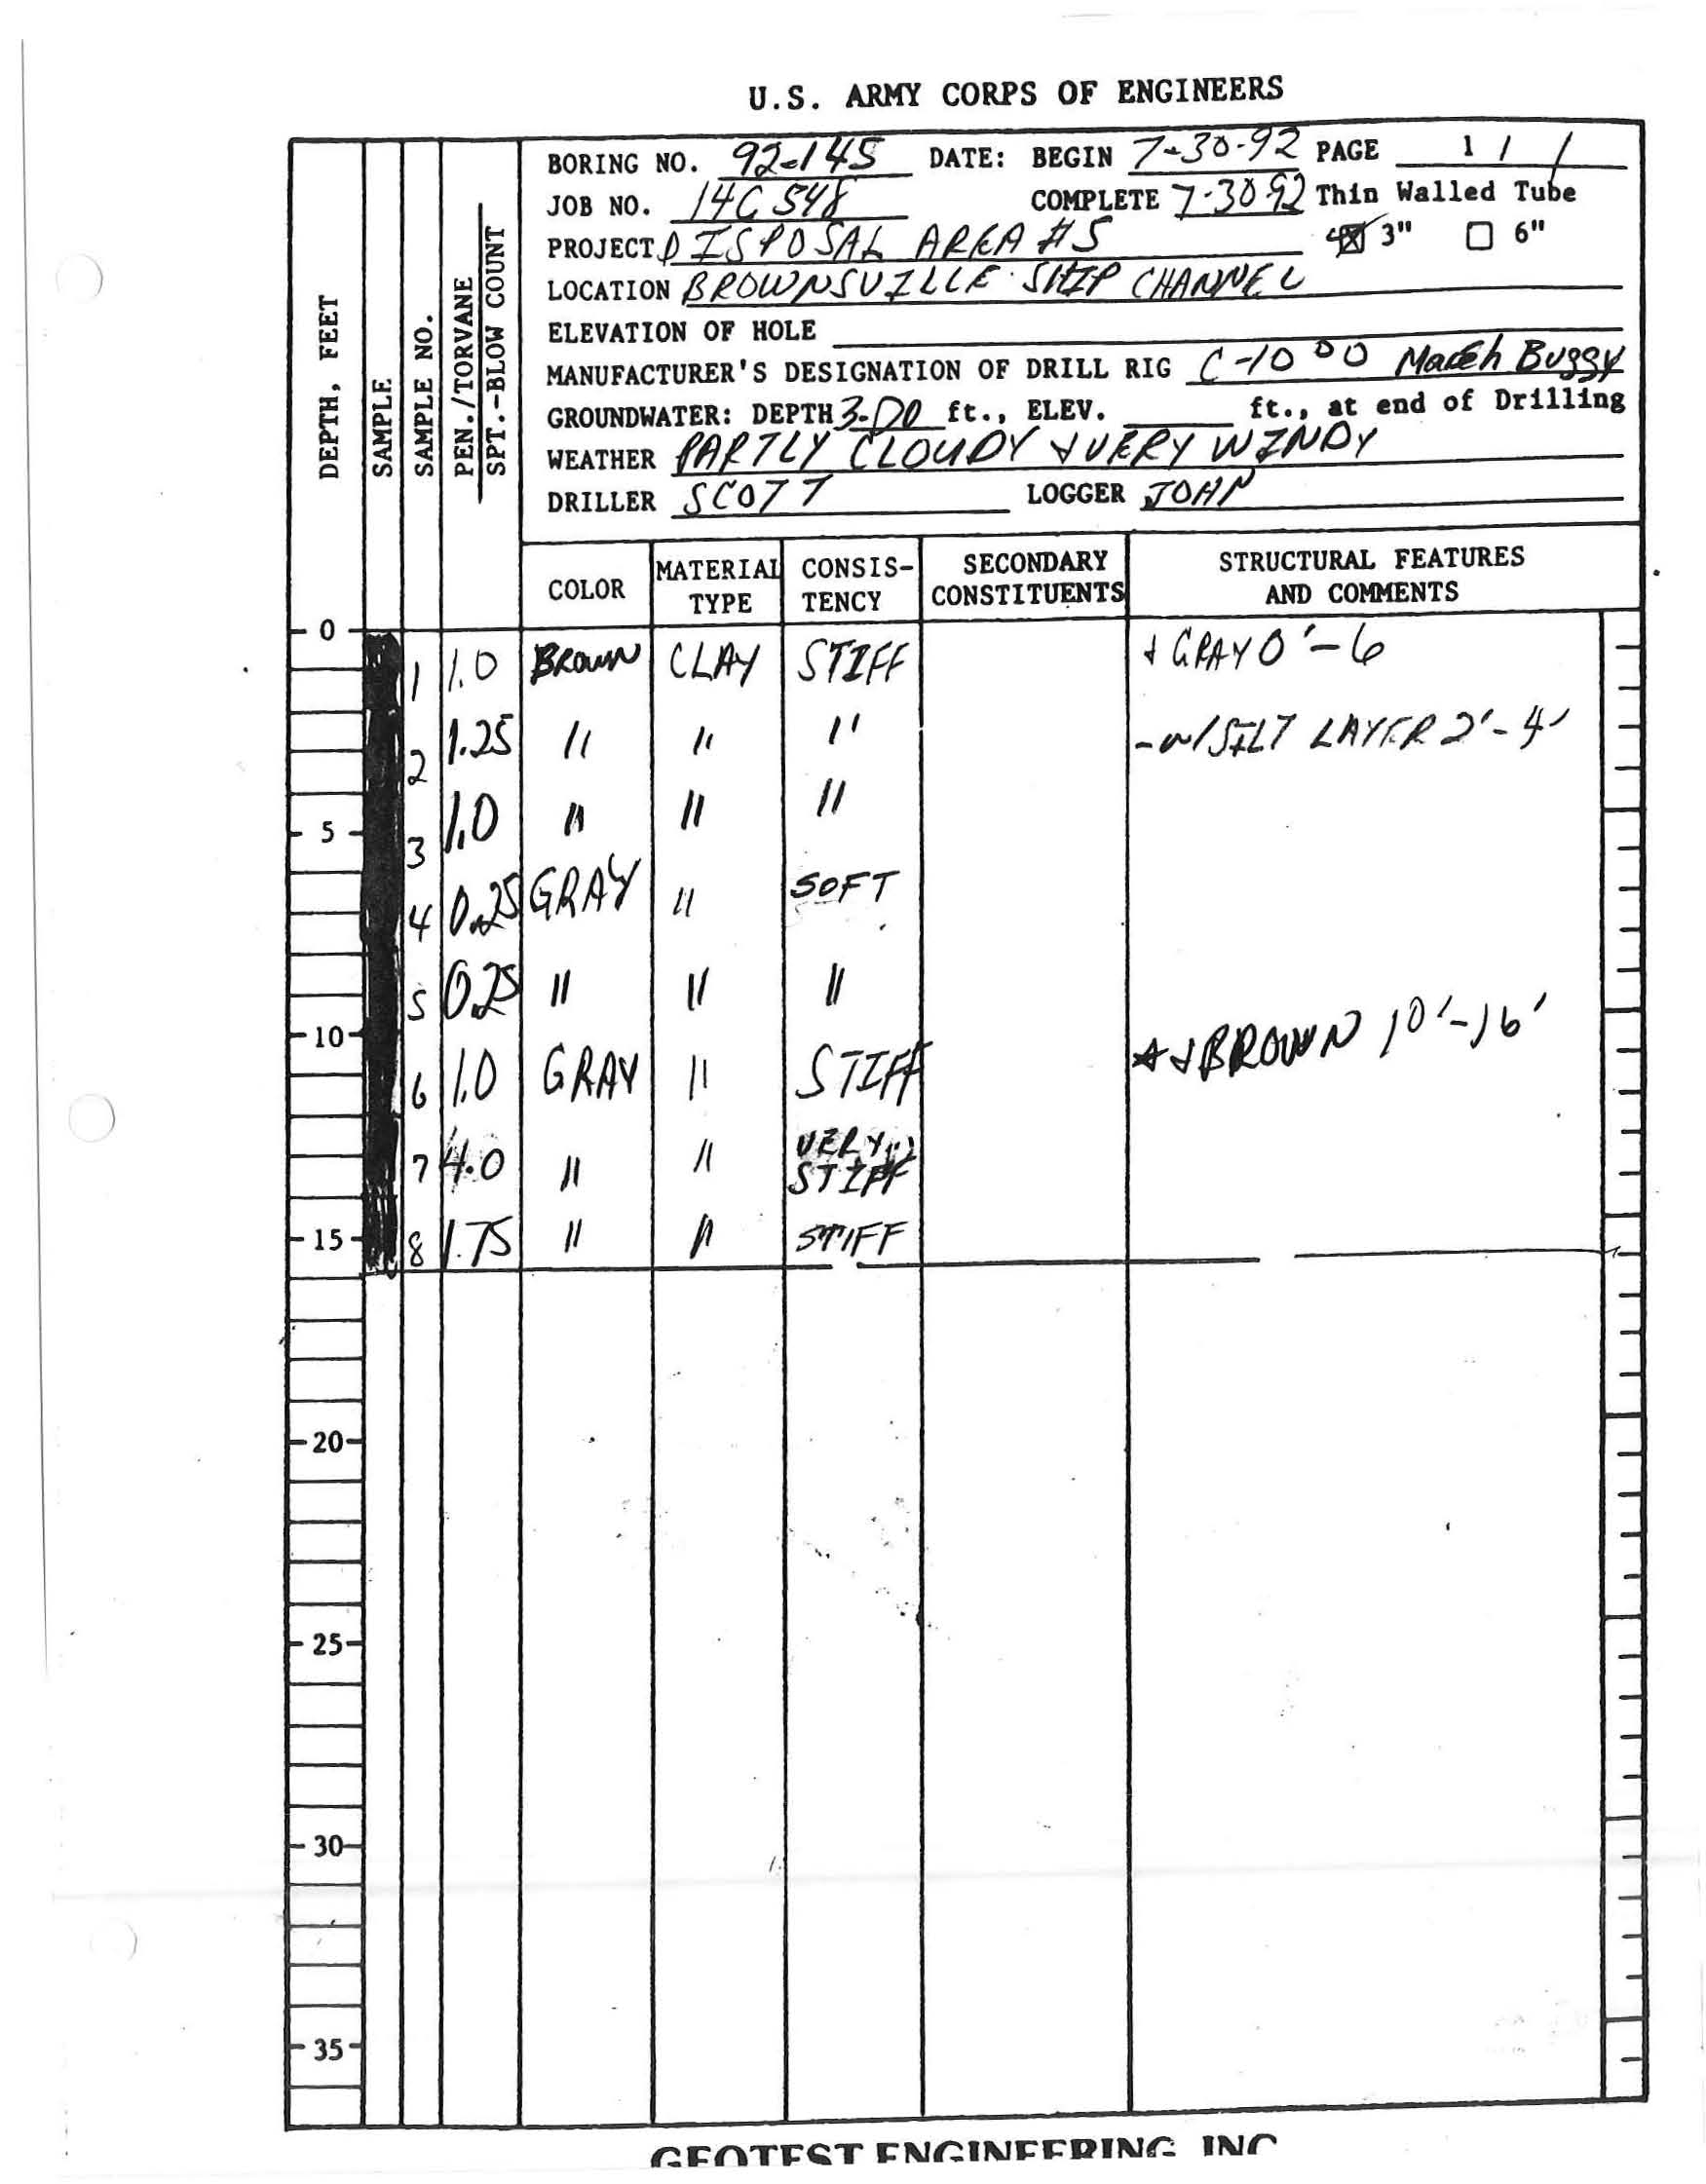 U.S. ARMY CORPS OF ENGINEERS
BORING NO. 92-145 DATE: BEGIN 7-30-92 PAGE 1 / /
JOB NO. 14C548 COMPLETE 7-30-92 Thin Walled Tube
PROJECT DISPOSAL AREA #5 3" 6"
LOCATION BROWNSVILLE SHIP CHANNEL
ELEVATION OF HOLE
MANUFACTURER'S DESIGNATION OF DRILL RIG C-1000 Marsh Buggy
GROUNDWATER: DEPTH 3.00 ft., ELEV. ft., at end of Drilling
WEATHER PARTLY CLOUDY & VERY WINDY
DRILLER SCOTT LOGGER JOHN
DEPTH, FEET
SAMPLE
SAMPLE NO.
PEN./TORVANE
SPT.-BLOW COUNT
COLOR MATERIAL TYPE CONSIS-TENCY SECONDARY CONSTITUENTS STRUCTURAL FEATURES AND COMMENTS
0
1 1.0 BROWN CLAY STIFF & GRAY 0'-6
2 1.25 " " " -w/SILT LAYER 2'-4'
5
3 1.0 " " "
4 0.25 GRAY " SOFT
5 0.25 " " "
10
6 1.0 GRAY " STIFF & BROWN 10'-16'
7 4.0 " " VERY STIFF
15
8 1.75 " " STIFF
20
25
30
35
GEOTEST ENGINEERING INC